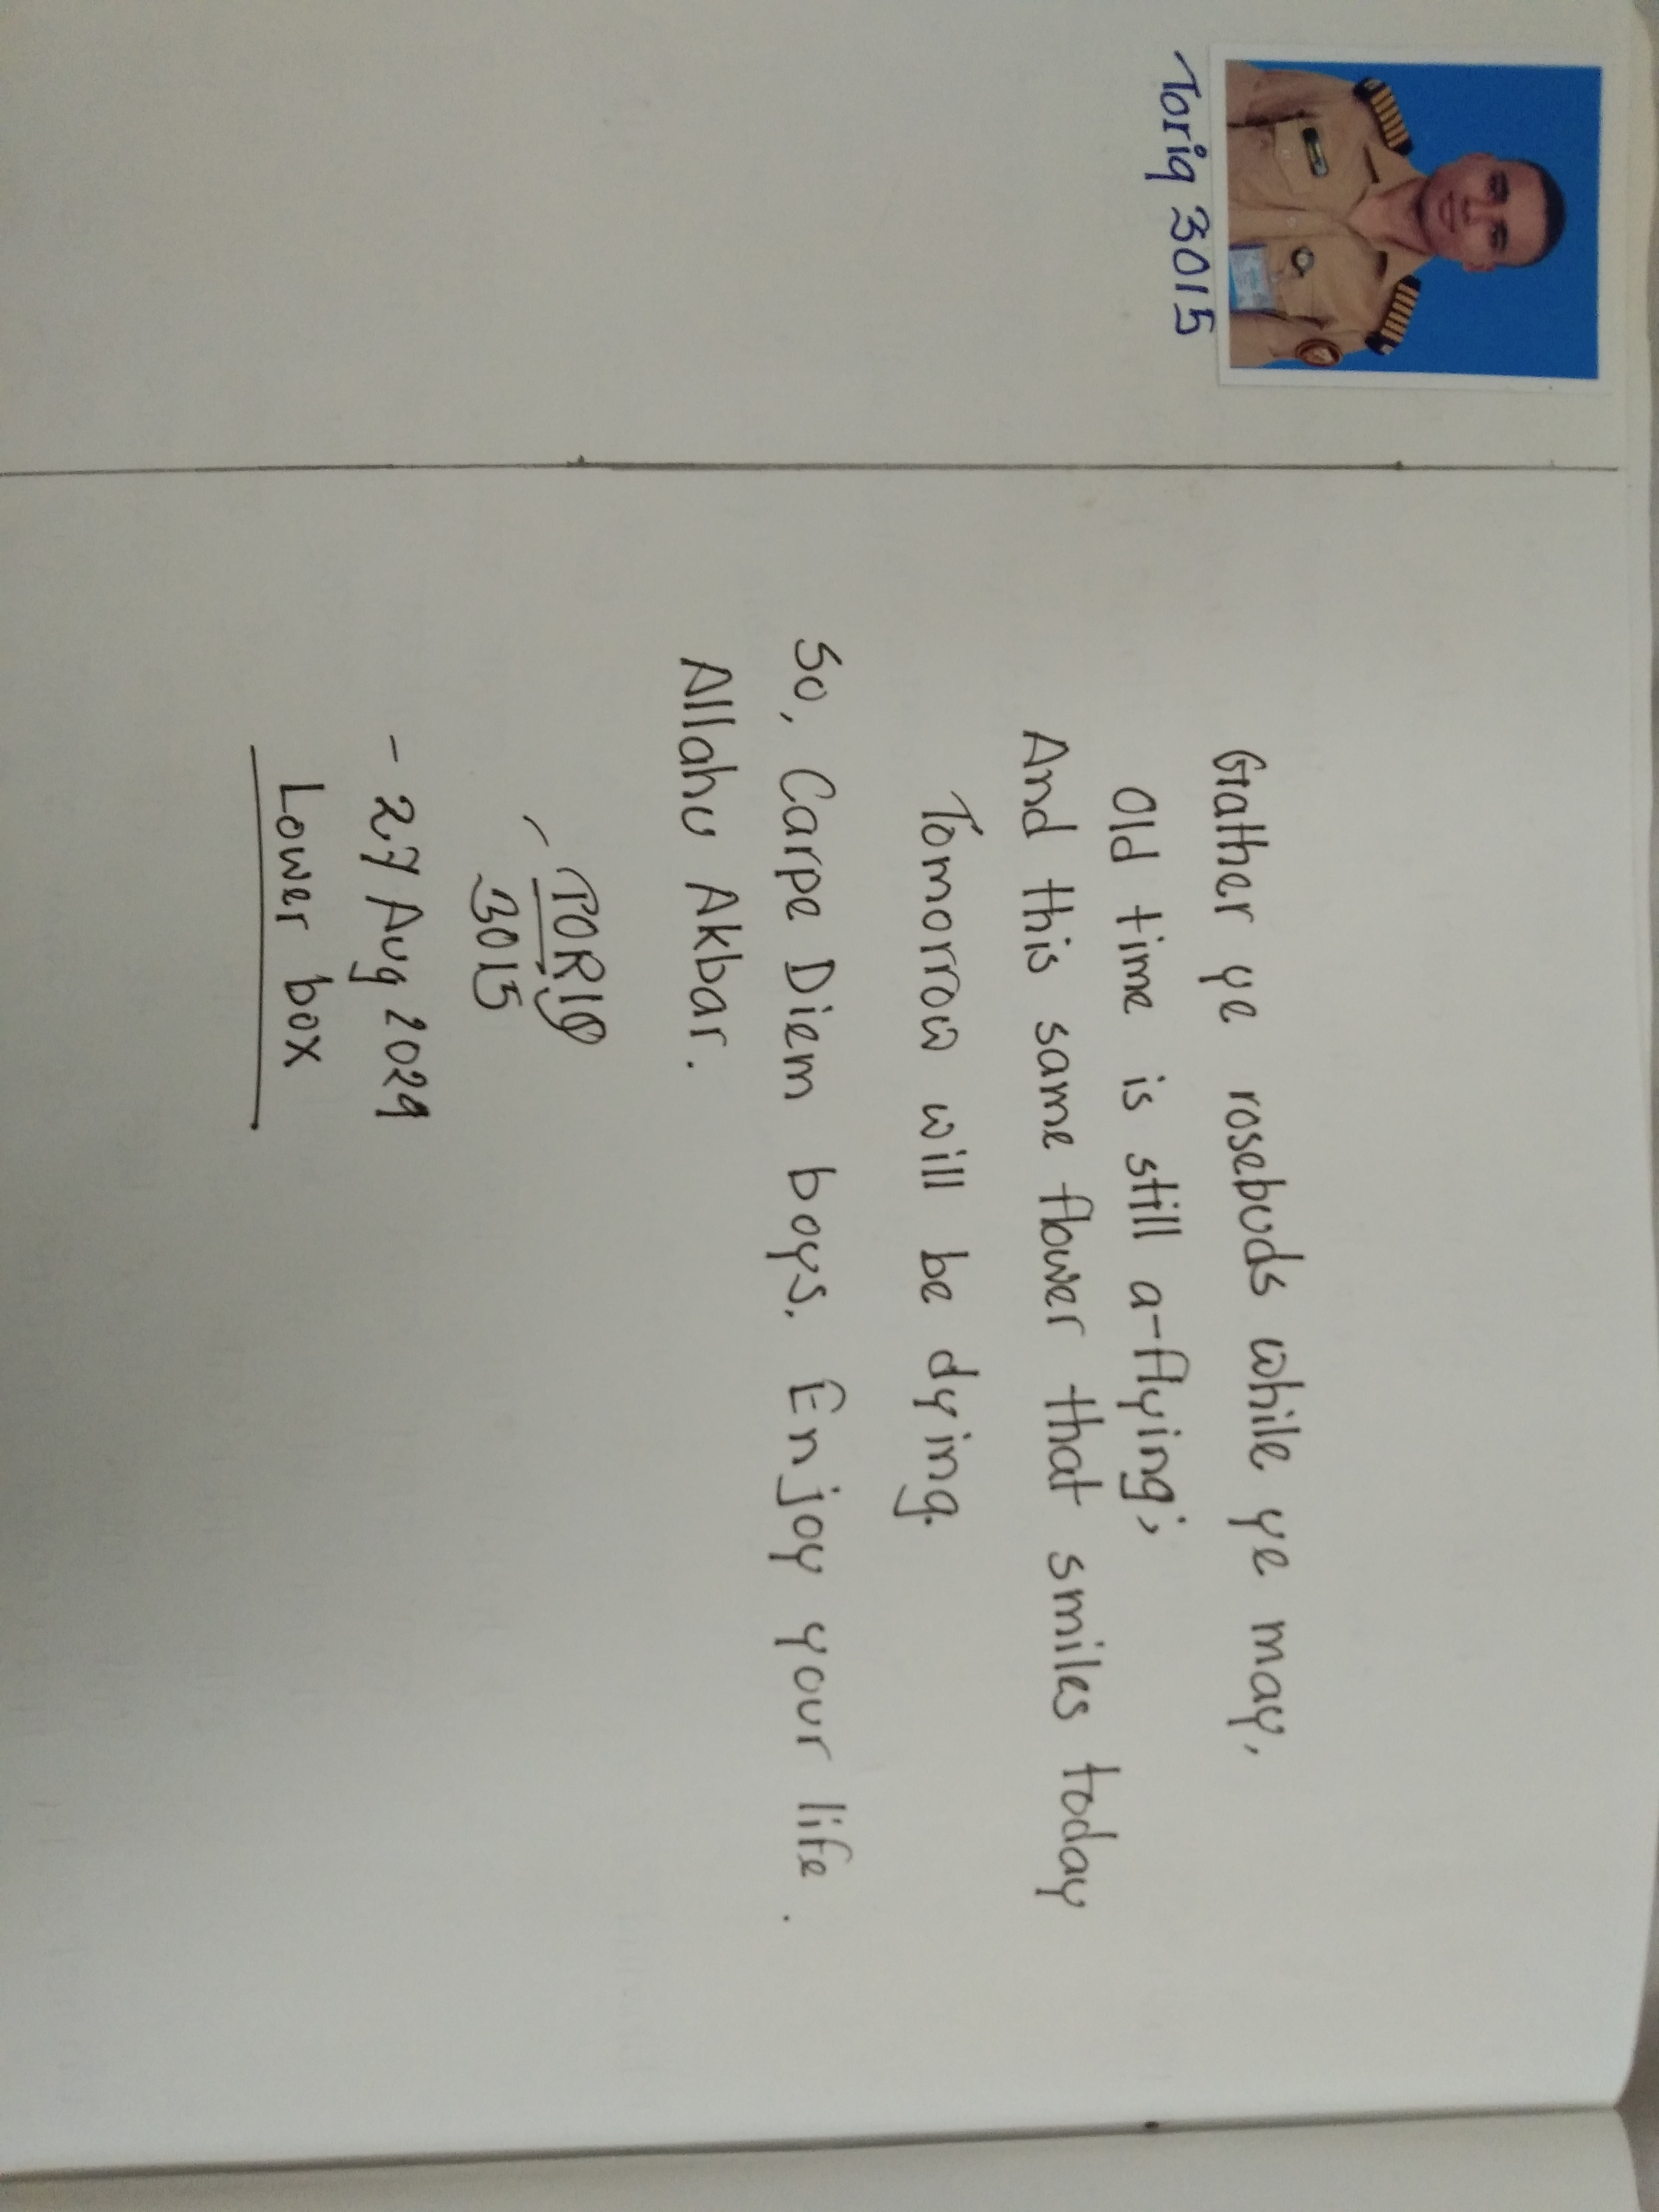 Toriq 3015
Gather ye rosebuds while ye may,
Old time is still a-flying;
And this same flower that smiles today
Tomorrow will be dying.
So, Carpe Diem boys. Enjoy your life.
Allahu Akbar.
TORIQ
3015
- 27 Aug 2029
Lower box